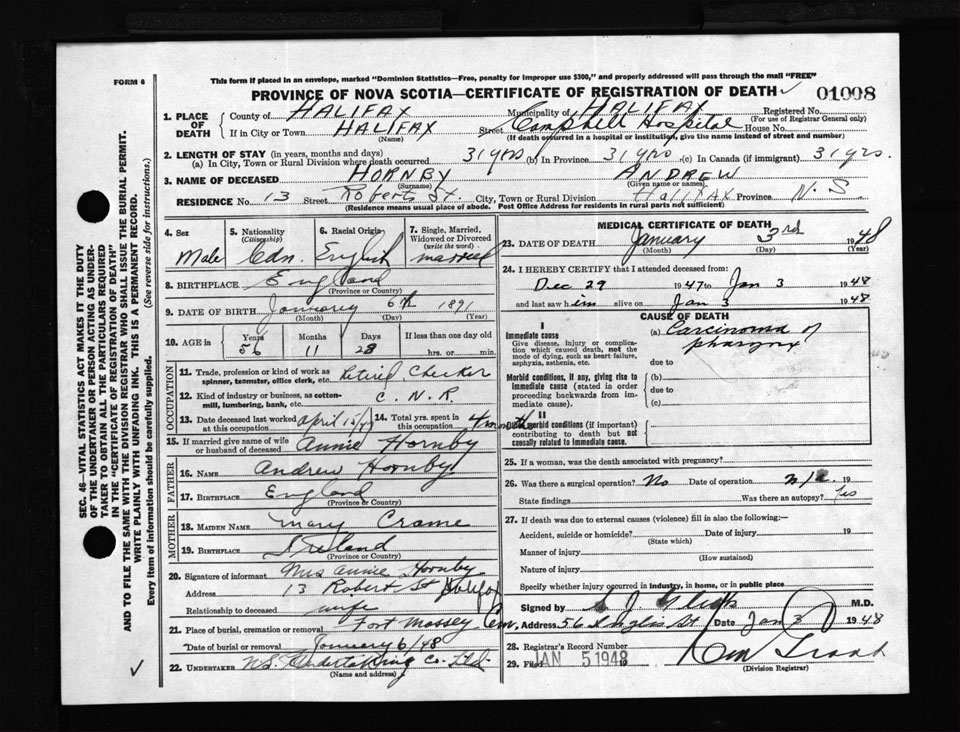 FORM 6
This form if placed in an envelope, marked "Dominion Statistics—Free, penalty for improper use $300," and properly addressed will pass through the mail "FREE"
PROVINCE OF NOVA SCOTIA—CERTIFICATE OF REGISTRATION OF DEATH ✓ 01008
1. PLACE OF DEATH
County of HALIFAX Municipality of HALIFAX Registered No.
(For use of Registrar General only)
If in City or Town HALIFAX Street Hospital House No.
(Name) (If death occurred in a hospital or institution, give name instead of street and number)
2. LENGTH OF STAY (in years, months and days)
(a) In City, Town or Rural Division where death occurred 31 yrs (b) In Province 31 yrs (c) In Canada (if immigrant) 31 yrs.
3. NAME OF DECEASED HORNBY ANDREW
(Surname) (Given name or names)
RESIDENCE No. 13 Street Roberts St. City, Town or Rural Division HALIFAX Province N.S.
(Residence means usual place of abode. Post Office Address for residents in rural parts not sufficient)
4. Sex Male
5. Nationality (Citizenship) Cdn.
6. Racial Origin English
7. Single, Married, Widowed or Divorced (write the word) married
8. BIRTHPLACE England
(Province or Country)
9. DATE OF BIRTH January 6th 1891
(Month) (Day) (Year)
10. AGE in Years Months Days If less than one day
56 11 28 hrs. or min.
OCCUPATION
11. Trade, profession or kind of work as spinner, teamster, office clerk, etc. Retired Checker
12. Kind of industry or business, as cotton-mill, lumbering, bank, etc. C.N.R.
13. Date deceased last worked at this occupation April 15/47
14. Total yrs. spent in this occupation
15. If married give name of wife or husband of deceased Annie Hornby
FATHER
16. NAME Andrew Hornby
17. BIRTHPLACE England
(Province or Country)
MOTHER
18. MAIDEN NAME Mary Crame
19. BIRTHPLACE Ireland
(Province or Country)
20. Signature of informant Mrs Annie Hornby
Address 13 Roberts St Halifax
Relationship to deceased wife
21. Place of burial, cremation or removal Fort Massey Cem.
Date of burial or removal January 6/48
22. UNDERTAKER N.S. Undertaking Co. Ltd.
(Name and address)
MEDICAL CERTIFICATE OF DEATH
23. DATE OF DEATH January 3rd 1948
(Month) (Day) (Year)
24. I HEREBY CERTIFY that I attended deceased from:
Dec 29 1947 to Jan 3 1948
and last saw him alive on Jan 3 1948
CAUSE OF DEATH
I
Immediate cause
Give disease, injury or complication which caused death, not the mode of dying, such as heart failure, asphyxia, asthenia, etc.
(a) Carcinoma of pharynx
due to
Morbid conditions, if any, giving rise to immediate cause (stated in order proceeding backwards from immediate cause).
(b)
due to
(c)
II
Other morbid conditions (if important) contributing to death but not causally related to immediate cause.
25. If a woman, was the death associated with pregnancy?
26. Was there a surgical operation? No Date of operation 19
State findings Was there an autopsy? Yes
27. If death was due to external causes (violence) fill in also the following:—
Accident, suicide or homicide? Date of injury 19
(State which)
Manner of injury
(How sustained)
Nature of injury
Specify whether injury occurred in industry, in home, or in public place
Signed by M.D.
Address 56 Inglis St Date Jan 3 1948
28. Registrar's Record Number
29. Filed JAN 5 1948
(Division Registrar)
SEC. 46—VITAL STATISTICS ACT MAKES IT THE DUTY
OF THE UNDERTAKER OR PERSON ACTING AS UNDER-
TAKER TO OBTAIN ALL THE PARTICULARS REQUIRED
IN THE "CERTIFICATE OF REGISTRATION OF DEATH"
AND TO FILE THE SAME WITH THE DIVISION REGISTRAR WHO SHALL ISSUE THE BURIAL PERMIT.
WRITE PLAINLY WITH UNFADING INK. THIS IS A PERMANENT RECORD.
Every item of information should be carefully supplied. (See reverse side for instructions.)